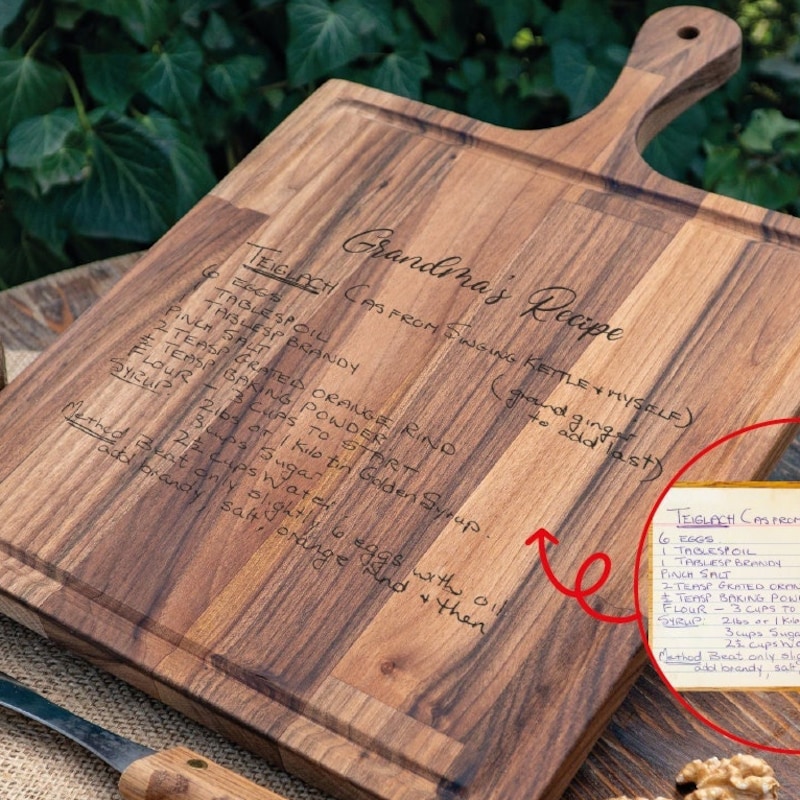 Grandma's Recipe
TEIGLACH (AS FROM SINGING KETTLE + MYSELF)
6 EGGS
1 TABLESPOIL
1 TABLESP BRANDY
PINCH SALT
2 TEASP GRATED ORANGE RIND
½ TEASP BAKING POWDER
FLOUR – 3 CUPS TO START
SYRUP: 2lbs or 1 Kilo tin Golden Syrup.
3 cups Sugar
2½ cups Water
(ground ginger
to add last)
Method Beat only slightly 6 eggs with oil
add brandy, salt, orange rind + then
TEIGLACH (AS FROM
6 EGGS
1 TABLESPOIL
1 TABLESP BRANDY
PINCH SALT
2 TEASP GRATED ORAN
½ TEASP BAKING POW
FLOUR – 3 CUPS TO
SYRUP: 2lbs or 1 Kilo
3 cups Suga
2½ cups W
Method Beat only slig
add brandy, salt,